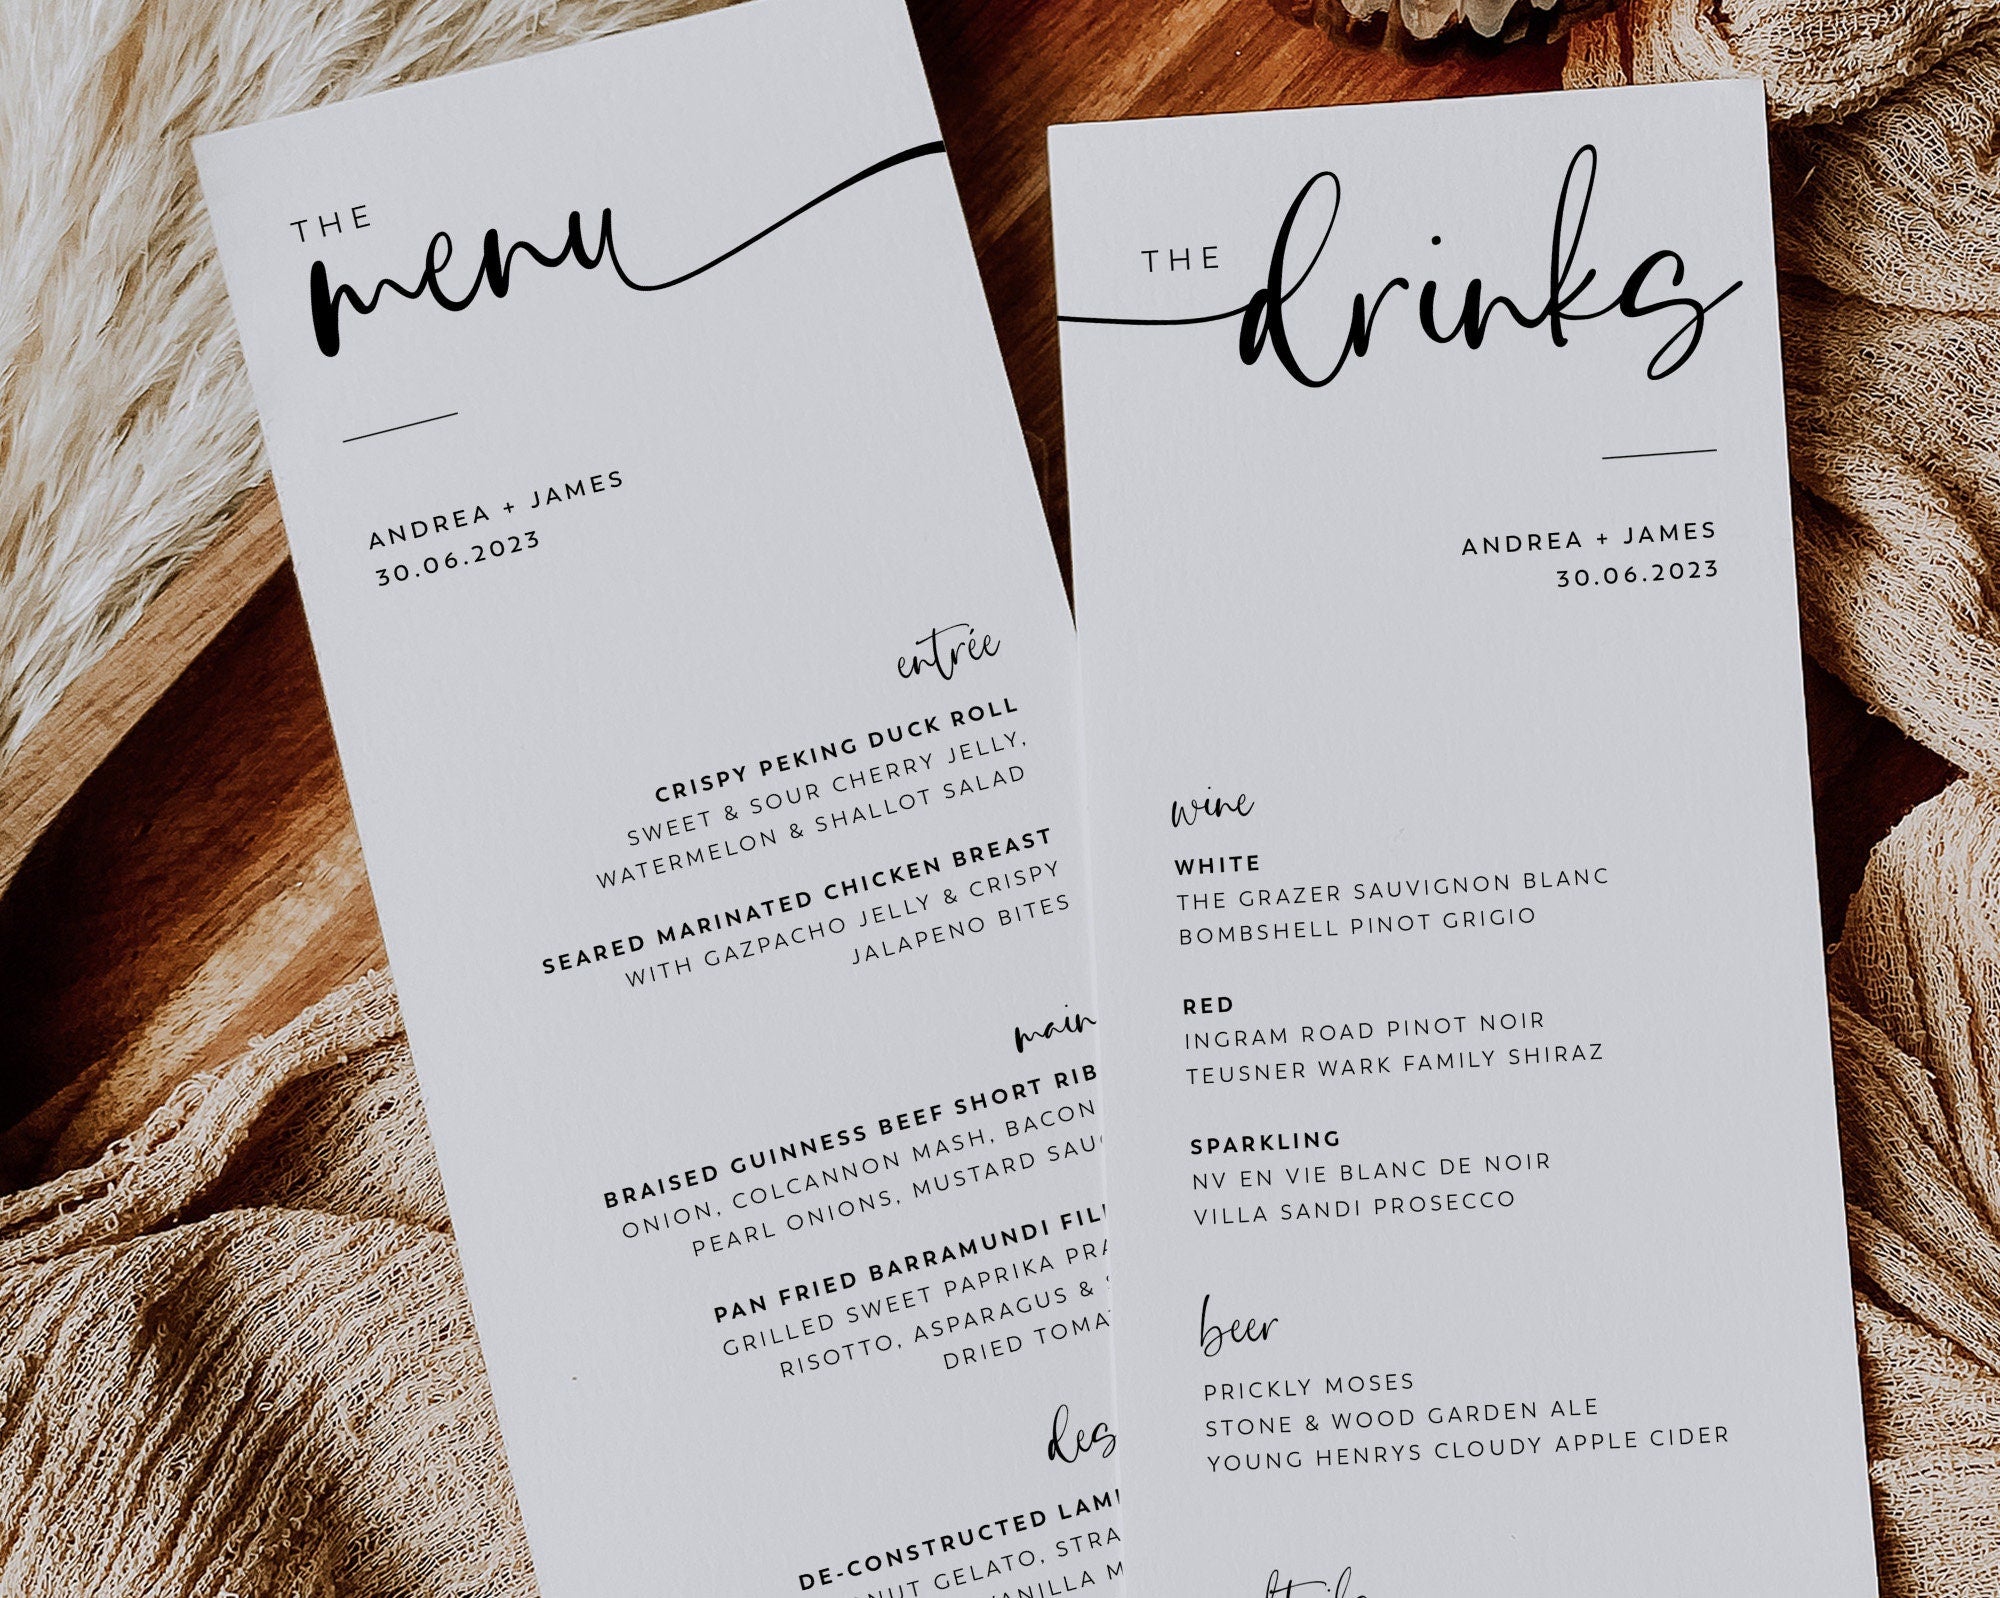 THE
menu
ANDREA + JAMES
30.06.2023
entrée
CRISPY PEKING DUCK ROLL
SWEET & SOUR CHERRY JELLY,
WATERMELON & SHALLOT SALAD
SEARED MARINATED CHICKEN BREAST
WITH GAZPACHO JELLY & CRISPY
JALAPENO BITES
main
BRAISED GUINNESS BEEF SHORT RIB
ONION, COLCANNON MASH, BACON
PEARL ONIONS, MUSTARD
PAN FRIED BARRAMUNDI
GRILLED SWEET PAPRIKA
RISOTTO, ASPARAGUS &
DRIED
DE-CONSTRUCTED
GELATO,
VANILLA
THE
drinks
ANDREA + JAMES
30.06.2023
wine
WHITE
THE GRAZER SAUVIGNON BLANC
BOMBSHELL PINOT GRIGIO
RED
INGRAM ROAD PINOT NOIR
TEUSNER WARK FAMILY SHIRAZ
SPARKLING
NV EN VIE BLANC DE NOIR
VILLA SANDI PROSECCO
beer
PRICKLY MOSES
STONE & WOOD GARDEN ALE
YOUNG HENRYS CLOUDY APPLE CIDER